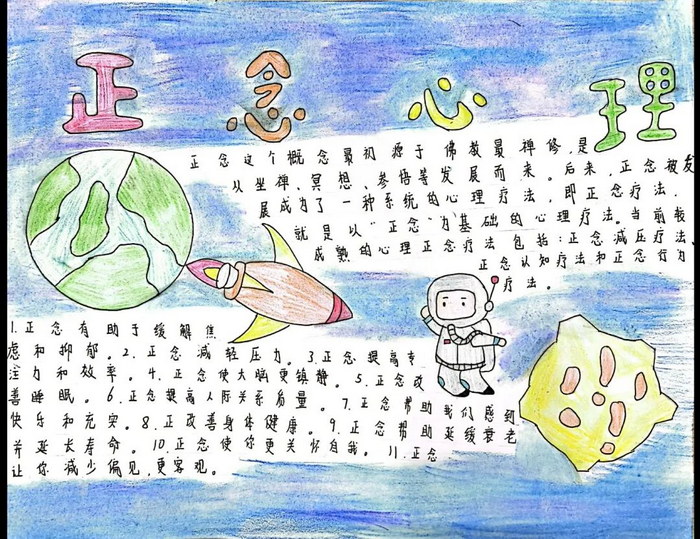 正念心理
正念这个概念最初源于佛教最禅修,是
以坐禅、冥想、参悟等发展而来。后来,正念被发
展成为了一种系统的心理疗法,即正念疗法.
就是以“正念”为基础的心理疗法。当前较
成熟的心理正念疗法包括:正念减压疗法
正念认知疗法和正念行为
疗法。
1.正念有助于缓解焦
虑和抑郁。2.正念减轻压力。3.正念提高专
注力和效率。4.正念使大脑更镇静。5.正念改
善睡眠。6.正念提高人际关系质量。7.正念帮助我们感到
快乐和充实。8.正改善身体健康。9.正念帮助延缓衰老
并延长寿命。10.正念使你更关怀自我。11.正念
让你减少偏见,更客观。